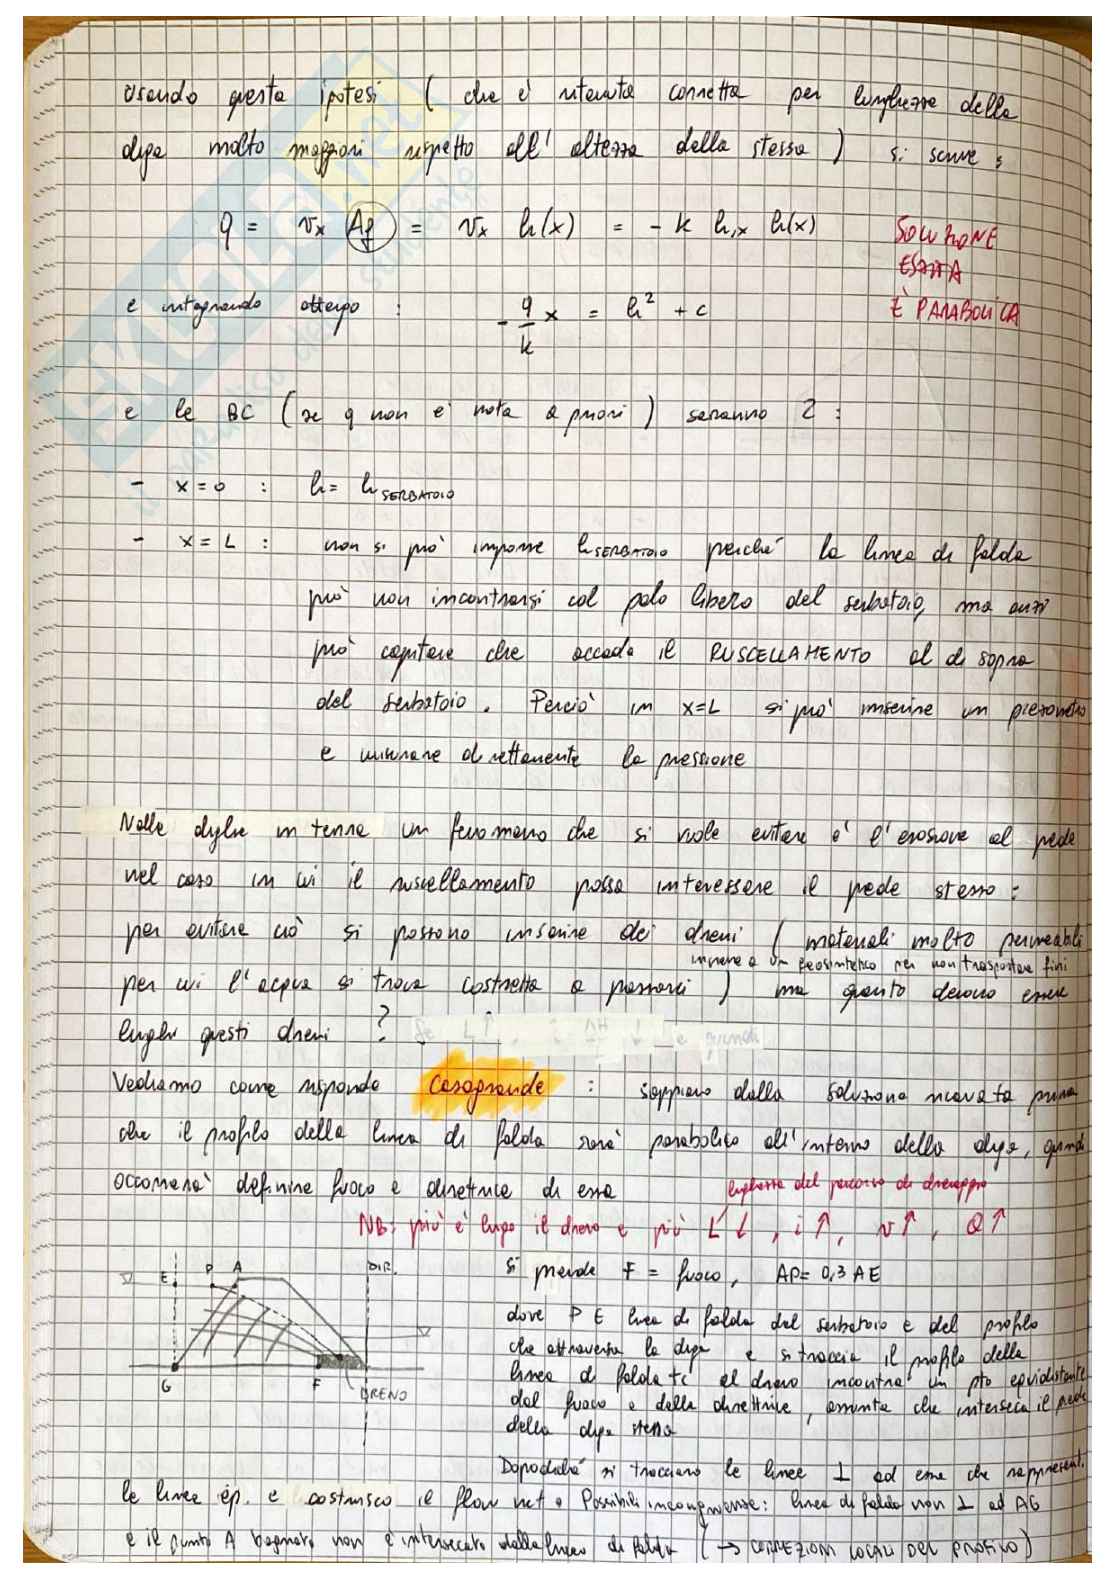 usando questa ipotesi ( che è ritenuta corretta per lunghezze della
diga molto maggiori rispetto all' altezza della stessa ) si scrive :
q = vx Af = vx h(x) = - k h,x h(x)
SOLUZIONE
ESATTA
È PARABOLICA
e integrando ottengo : - q/k x = h² + c
e le BC ( se q non è nota a priori ) saranno 2 :
- x = 0 : h = h SERBATOIO
- x = L : non si può imporre h SERBATOIO perché la linea di falda
può non incontrarsi col pelo libero del serbatoio, ma anzi
può capitare che accada il RUSCELLAMENTO al di sopra
del serbatoio. Perciò in x=L si può inserire un piezometro
e misurare direttamente la pressione
Nelle dighe in terra un fenomeno che si vuole evitare è l'erosione al piede
nel caso in cui il ruscellamento possa interessare il piede stesso :
per evitare ciò si possono inserire dei dreni ( materiali molto permeabili
insieme a un geosintetico per non trasportare fini
per cui l'acqua si trova costretta a passarci ) ma quanto devono essere
lunghi questi dreni ?
Vediamo come risponde Casagrande : sappiamo dalla soluzione ricavata prima
che il profilo della linea di falda sarà parabolico all'interno della diga, quindi
occorrerà definire fuoco e direttrice di essa
lunghezza del percorso di drenaggio
NB: più è lungo il dreno e più L ↓ , i ↑, v ↑ , Q ↑
E P A DIR.
G F DRENO
Si prende F = fuoco, AP = 0,3 AE
dove P ∈ linea di falda del serbatoio e del profilo
che attraversa la diga e si traccia il profilo della
linea di falda tc al dreno incontra un pto equidistante
dal fuoco e dalla direttrice, ammette che interseca il piede
della diga stessa
Dopodiché si tracciano le linee ⊥ ad esse che rappresent.
le linee ép. e costruisco il flow net. Possibili incongruenze: linea di falda non ⊥ ad AG
e il punto A bagnato non è intersecato dalla linea di falda ( → CORREZIONI LOCALI DEL PROFILO )